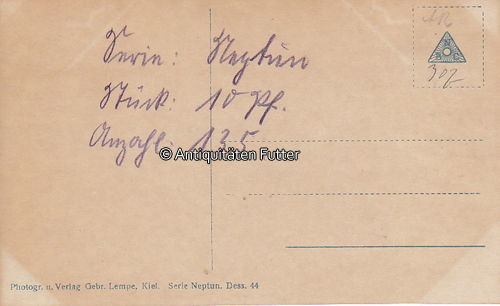 Serie: Neptun
Stück: 10 Pf.
Anzahl: 135
© Antiquitäten Futter
307
Photogr. u. Verlag Gebr. Lempe, Kiel. Serie Neptun. Dess. 44